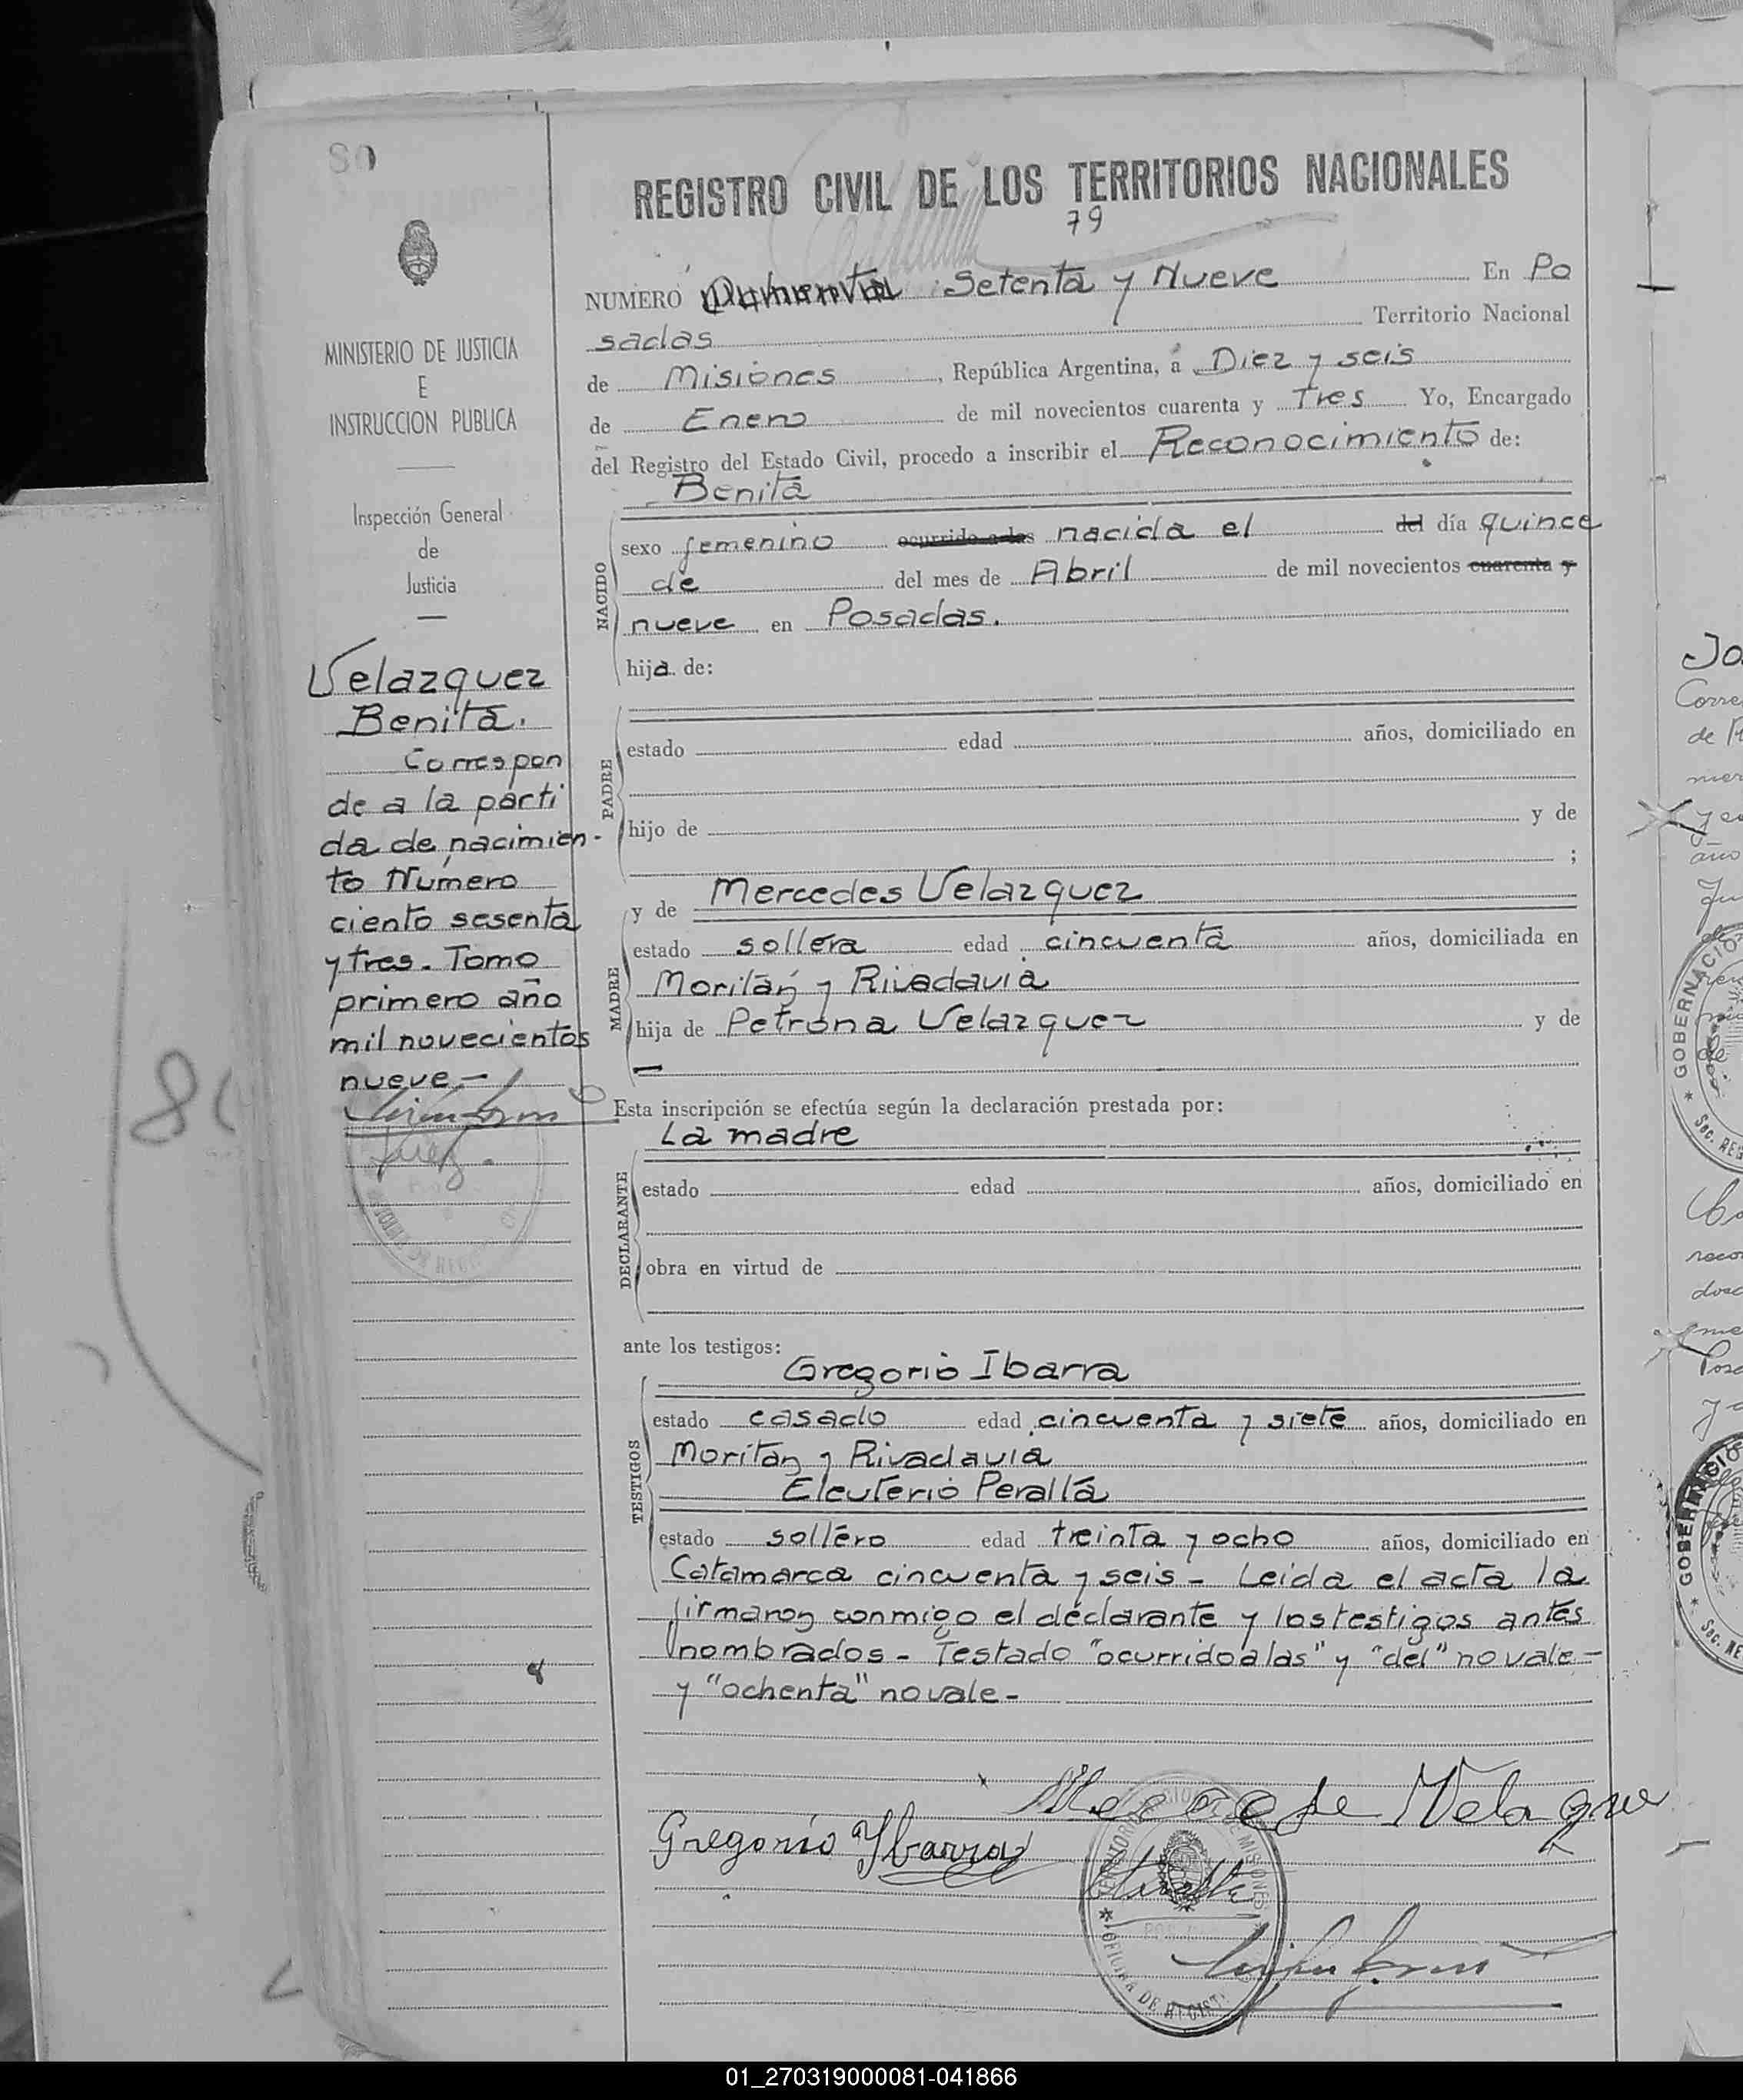 80
REGISTRO CIVIL DE LOS TERRITORIOS NACIONALES
79
NUMERO Setenta y Nueve En Po
sadas Territorio Nacional
de Misiones, República Argentina, á Diez y seis
de Enero de mil novecientos cuarenta y Tres Yo, Encargado
del Registro del Estado Civil, procedo a inscribir el Reconocimiento de:
Benita
NACIDO
sexo femenino ocurrido a las nacida el del día quince
de del mes de Abril de mil novecientos cuarenta y
nueve en Posadas.
hija de:
PADRE
estado edad años, domiciliado en
hijo de y de
;
y de Mercedes Velazquez
MADRE
estado soltera edad cincuenta años, domiciliada en
Moritán y Rivadavia
hija de Petrona Velazquez y de
—
Esta inscripción se efectúa según la declaración prestada por:
La madre
DECLARANTE
estado edad años, domiciliado en
obra en virtud de
ante los testigos:
Gregorio Ibarra
TESTIGOS
estado casado edad cincuenta y siete años, domiciliado en
Moritán y Rivadavia
Eleuterio Peralta
estado soltero edad treinta y ocho años, domiciliado en
Catamarca cincuenta y seis - Leida el acta la
firmaron conmigo el declarante y los testigos antes
nombrados - Testado "ocurrido a las" y "del" no vale -
y "ochenta" no vale -
Gregorio Ybarra
MINISTERIO DE JUSTICIA
E
INSTRUCCION PUBLICA
Inspección General
de
Justicia
Velazquez
Benita.
Correspon
de a la parti
da de nacimien-
to Número
ciento sesenta
y tres. Tomo
primero año
mil novecientos
nueve -
Juez.
OFICINA DE REGIST
01_270319000081-041866